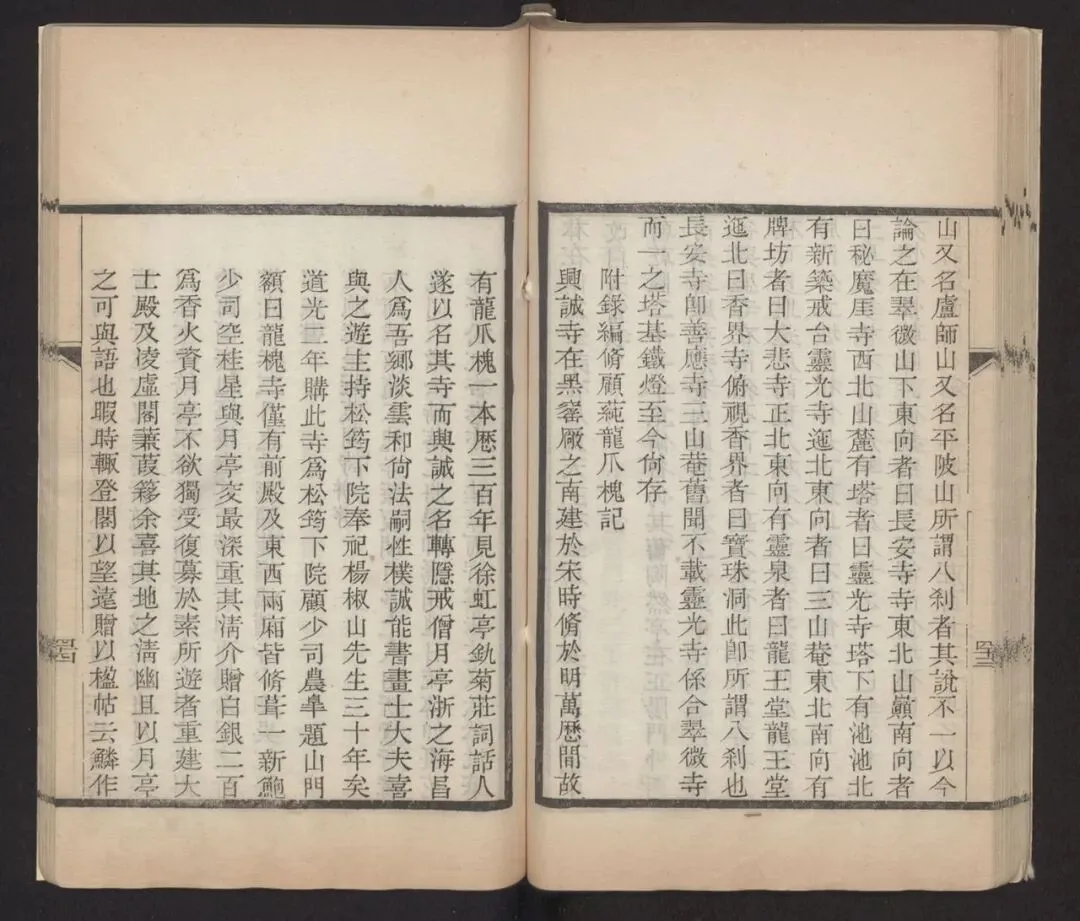 山又名盧師山又名平陂山所謂八刹者其說不一以今
論之在翠微山下東向者曰長安寺寺東北山巔南向者
曰秘魔厓寺西北山麓有塔者曰靈光寺塔下有池池北
有新築戒台靈光寺迤北東向者曰三山菴東北南向有
牌坊者曰大悲寺正北東向有靈泉者曰龍王堂龍王堂
迤北曰香界寺俯視香界者曰寶珠洞此卽所謂八刹也
長安寺卽善應寺三山菴舊聞不載靈光寺係合翠微寺
而一之塔基鐵燈至今尙存
附錄編脩顧蒓龍爪槐記
興誠寺在黑窰厰之南建於宋時脩於明萬厯間故
有龍爪槐一本厯三百年見徐虹亭釚菊莊詞話人
遂以名其寺而興誠之名轉隱戒僧月亭浙之海昌
人爲吾鄉淡雲和尙法嗣性樸誠能書畫士大夫喜
與之遊主持松筠下院奉祀楊椒山先生三十年矣
道光二年購此寺爲松筠下院顧少司農臯題山門
額曰龍槐寺僅有前殿及東西兩廂皆脩葺一新鮑
少司空桂星與月亭交最深重其淸介贈白銀二百
爲香火資月亭不欲獨受復募於素所遊者重建大
士殿及凌虛閣蒹葭簃余喜其地之淸幽且以月亭
之可與語也暇時輒登閣以望遠贈以楹帖云鱗作